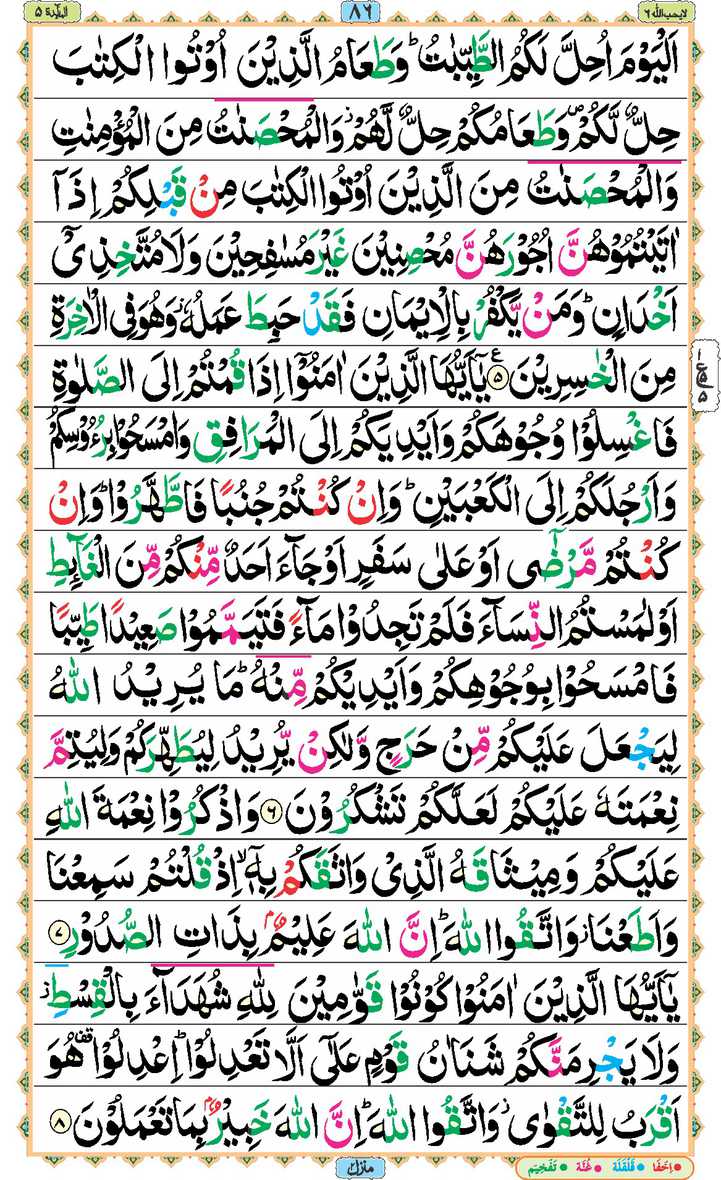 لایحب اللہ ٦ ٨٦ المآئدة ٥
اَلْيَوْمَ اُحِلَّ لَكُمُ الطَّيِّبٰتُ ؕ وَطَعَامُ الَّذِيْنَ اُوْتُوا الْكِتٰبَ
حِلٌّ لَّكُمْ ۪ وَطَعَامُكُمْ حِلٌّ لَّهُمْ ۫ وَالْمُحْصَنٰتُ مِنَ الْمُؤْمِنٰتِ
وَالْمُحْصَنٰتُ مِنَ الَّذِيْنَ اُوْتُوا الْكِتٰبَ مِنْ قَبْلِكُمْ اِذَاۤ
اٰتَيْتُمُوْهُنَّ اُجُوْرَهُنَّ مُحْصِنِيْنَ غَيْرَ مُسٰفِحِيْنَ وَلَا مُتَّخِذِيْۤ
اَخْدَانٍ ؕ وَمَنْ يَّكْفُرْ بِالْاِيْمَانِ فَقَدْ حَبِطَ عَمَلُهٗ ؗ وَهُوَ فِى الْاٰخِرَةِ
مِنَ الْخٰسِرِيْنَ ۧ ٥ يٰۤاَيُّهَا الَّذِيْنَ اٰمَنُوْۤا اِذَا قُمْتُمْ اِلَى الصَّلٰوةِ
ع ٥
فَاغْسِلُوْا وُجُوْهَكُمْ وَاَيْدِيَكُمْ اِلَى الْمَرَافِقِ وَامْسَحُوْا بِرُءُوْسِكُمْ
وَاَرْجُلَكُمْ اِلَى الْكَعْبَيْنِ ؕ وَاِنْ كُنْتُمْ جُنُبًا فَاطَّهَّرُوْا ؕ وَاِنْ
كُنْتُمْ مَّرْضٰۤى اَوْ عَلٰى سَفَرٍ اَوْ جَآءَ اَحَدٌ مِّنْكُمْ مِّنَ الْغَآئِطِ
اَوْ لٰمَسْتُمُ النِّسَآءَ فَلَمْ تَجِدُوْا مَآءً فَتَيَمَّمُوْا صَعِيْدًا طَيِّبًا
فَامْسَحُوْا بِوُجُوْهِكُمْ وَاَيْدِيْكُمْ مِّنْهُ ؕ مَا يُرِيْدُ اللّٰهُ
لِيَجْعَلَ عَلَيْكُمْ مِّنْ حَرَجٍ وَّلٰكِنْ يُّرِيْدُ لِيُطَهِّرَكُمْ وَلِيُتِمَّ
نِعْمَتَهٗ عَلَيْكُمْ لَعَلَّكُمْ تَشْكُرُوْنَ ٦ وَاذْكُرُوْا نِعْمَةَ اللّٰهِ
عَلَيْكُمْ وَمِيْثَاقَهُ الَّذِيْ وَاثَقَكُمْ بِهٖۤ ۙ اِذْ قُلْتُمْ سَمِعْنَا
وَاَطَعْنَا ؗ وَاتَّقُوا اللّٰهَ ؕ اِنَّ اللّٰهَ عَلِيْمٌۢ بِذَاتِ الصُّدُوْرِ ٧
يٰۤاَيُّهَا الَّذِيْنَ اٰمَنُوْا كُوْنُوْا قَوّٰمِيْنَ لِلّٰهِ شُهَدَآءَ بِالْقِسْطِ ؗ
وَلَا يَجْرِمَنَّكُمْ شَنَاٰنُ قَوْمٍ عَلٰۤى اَلَّا تَعْدِلُوْا ؕ اِعْدِلُوْا ۫ هُوَ
اَقْرَبُ لِلتَّقْوٰى ؗ وَاتَّقُوا اللّٰهَ ؕ اِنَّ اللّٰهَ خَبِيْرٌۢ بِمَا تَعْمَلُوْنَ ٨
منزل ٢ • اِخْفَا • قَلْقَلَة • غُنَّة • تَفْخِيْم